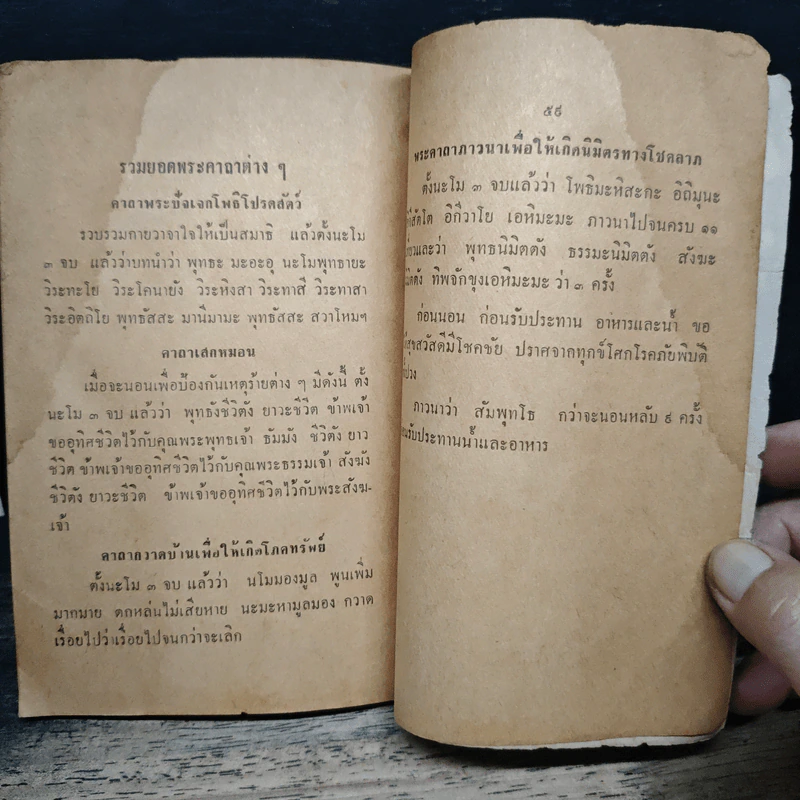 รวมยอดพระคาถาต่าง ๆ
คาถาพระปัจเจกโพธิโปรดสัตว์
รวบรวมกายวาจาใจให้เป็นสมาธิ แล้วตั้งนะโม
๓ จบ แล้วว่าบทนำว่า พุทธะ มะอะอุ นะโมพุทธายะ
วิระทะโย วิระโคนายัง วิระหิงสา วิระทาสี วิระทาสา
วิระอิตถิโย พุทธัสสะ มานีมามะ พุทธัสสะ สวาโหมฯ
คาถาเสกหมอน
เมื่อจะนอนเพื่อป้องกันเหตุร้ายต่าง ๆ มีดังนี้ ตั้ง
นะโม ๓ จบ แล้วว่า พุทธังชีวิตัง ยาวะชีวิต ข้าพเจ้า
ขออุทิศชีวิตไว้กับคุณพระพุทธเจ้า ธัมมัง ชีวิตัง ยาว
ชีวิต ข้าพเจ้าขออุทิศชีวิตไว้กับคุณพระธรรมเจ้า สังฆัง
ชีวิตัง ยาวะชีวิต ข้าพเจ้าขออุทิศชีวิตไว้กับพระสังฆ-
เจ้า
คาถากวาดบ้านเพื่อให้เกิดโภคทรัพย์
ตั้งนะโม ๓ จบ แล้วว่า นโมมองมูล พูนเพิ่ม
มากมาย ตกหล่นไม่เสียหาย นะมะหามูลมอง กวาด
เรื่อยไปว่าเรื่อยไปจนกว่าจะเลิก
๕๙
พระคาถาภาวนาเพื่อให้เกิดนิมิตรทางโชคลาภ
ตั้งนะโม ๓ จบแล้วว่า โพธิมะหิสะกะ อิถิมุนะ
อิกีวาโย เอหิมะมะ ภาวนาไปจนครบ ๑๑
และว่า พุทธนิมิตตัง ธรรมะนิมิตตัง สังฆะ
มิตตัง ทิพจักขุงเอหิมะมะ ว่า ๓ ครั้ง
ก่อนนอน ก่อนรับประทาน อาหารและน้ำ ขอ
สุขสวัสดีมีโชคชัย ปราศจากทุกข์โศกโรคภัยพิบัติ
ปวง
ภาวนาว่า สัมพุทโธ กว่าจะนอนหลับ ๙ ครั้ง
รับประทานน้ำและอาหาร